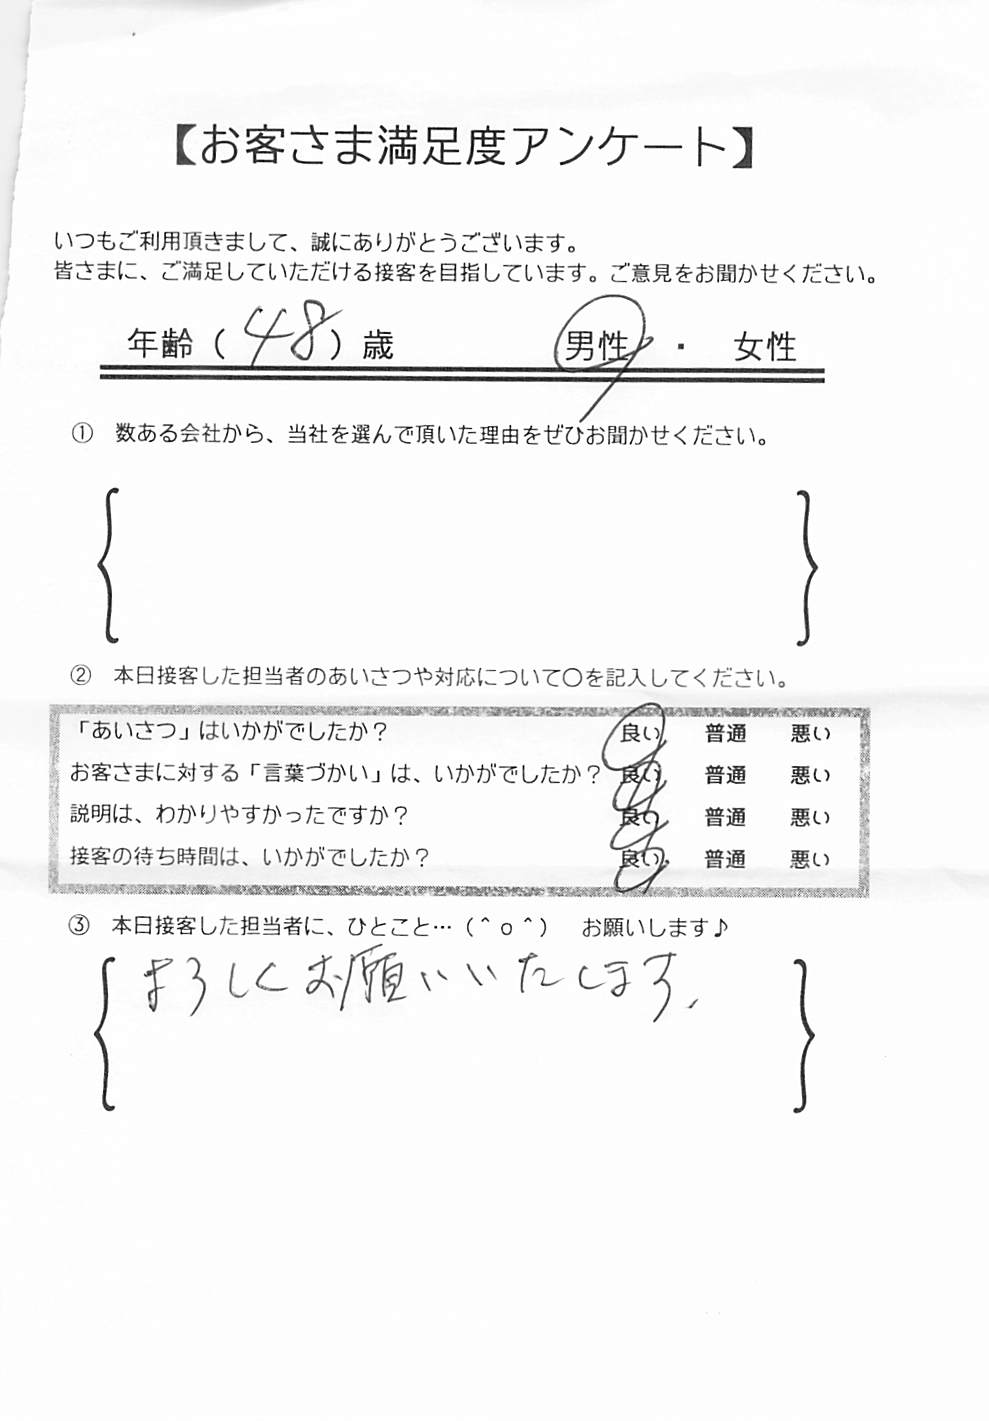 【お客さま満足度アンケート】
いつもご利用頂きまして、誠にありがとうございます。
皆さまに、ご満足していただける接客を目指しています。ご意見をお聞かせください。
年齢（48）歳　男性・女性
①　数ある会社から、当社を選んで頂いた理由をぜひお聞かせください。
②　本日接客した担当者のあいさつや対応について〇を記入してください。
「あいさつ」はいかがでしたか？　良い　普通　悪い
お客さまに対する「言葉づかい」は、いかがでしたか？　良い　普通　悪い
説明は、わかりやすかったですか？　良い　普通　悪い
接客の待ち時間は、いかがでしたか？　良い　普通　悪い
③　本日接客した担当者に、ひとこと…（＾ｏ＾）　お願いします♪
よろしくお願いいたします、